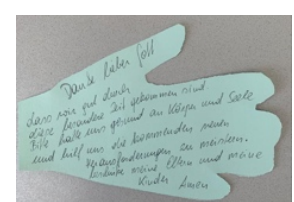 Danke lieber Gott
dass wir gut durch
diese besondere Zeit gekommen sind
Bitte halte uns gesund an Körper und Seele
und hilf uns die kommenden neuen
Herausforderungen zu meistern.
meine Eltern und meine
Kinder Amen